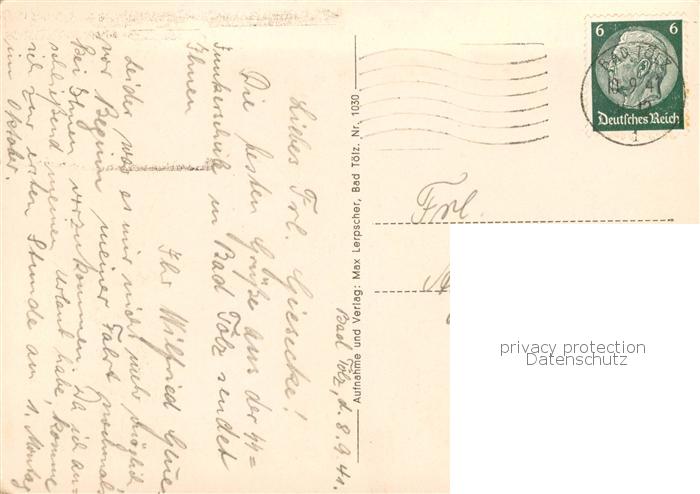 Bad Tölz, d. 8.9.41.
Liebes Frl. Giesecke!
Die besten Grüße aus der SS=
Junkerschule in Bad Tölz sendet
Ihnen
Ihr Wilfried
Leider war es mir nicht mehr möglich
vor Beginn meiner Fahrt nochmals
bei Ihnen vorzukommen. Da ich an-
schließend meinen Urlaub habe, komme
ich zur ersten Stunde am 1. Montag
im Oktober.
Aufnahme und Verlag: Max Lerpscher, Bad Tölz. Nr. 1030.
6 6
BAD TÖLZ
Deutsches Reich
1
Frl.
privacy protection
Datenschutz